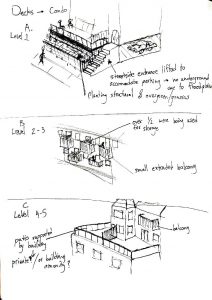 Decks → Condo
A.
Level 1
streetside entrance lifted to
accommodate parking → no underground
due to floodplain
Planting structural & evergreen/grasses
B.
Level 2-3
over 1/2 were being used
for storage
small extruded balcony
C.
Level 4-5
patio supported
by building
private or building
amenity?
balcony